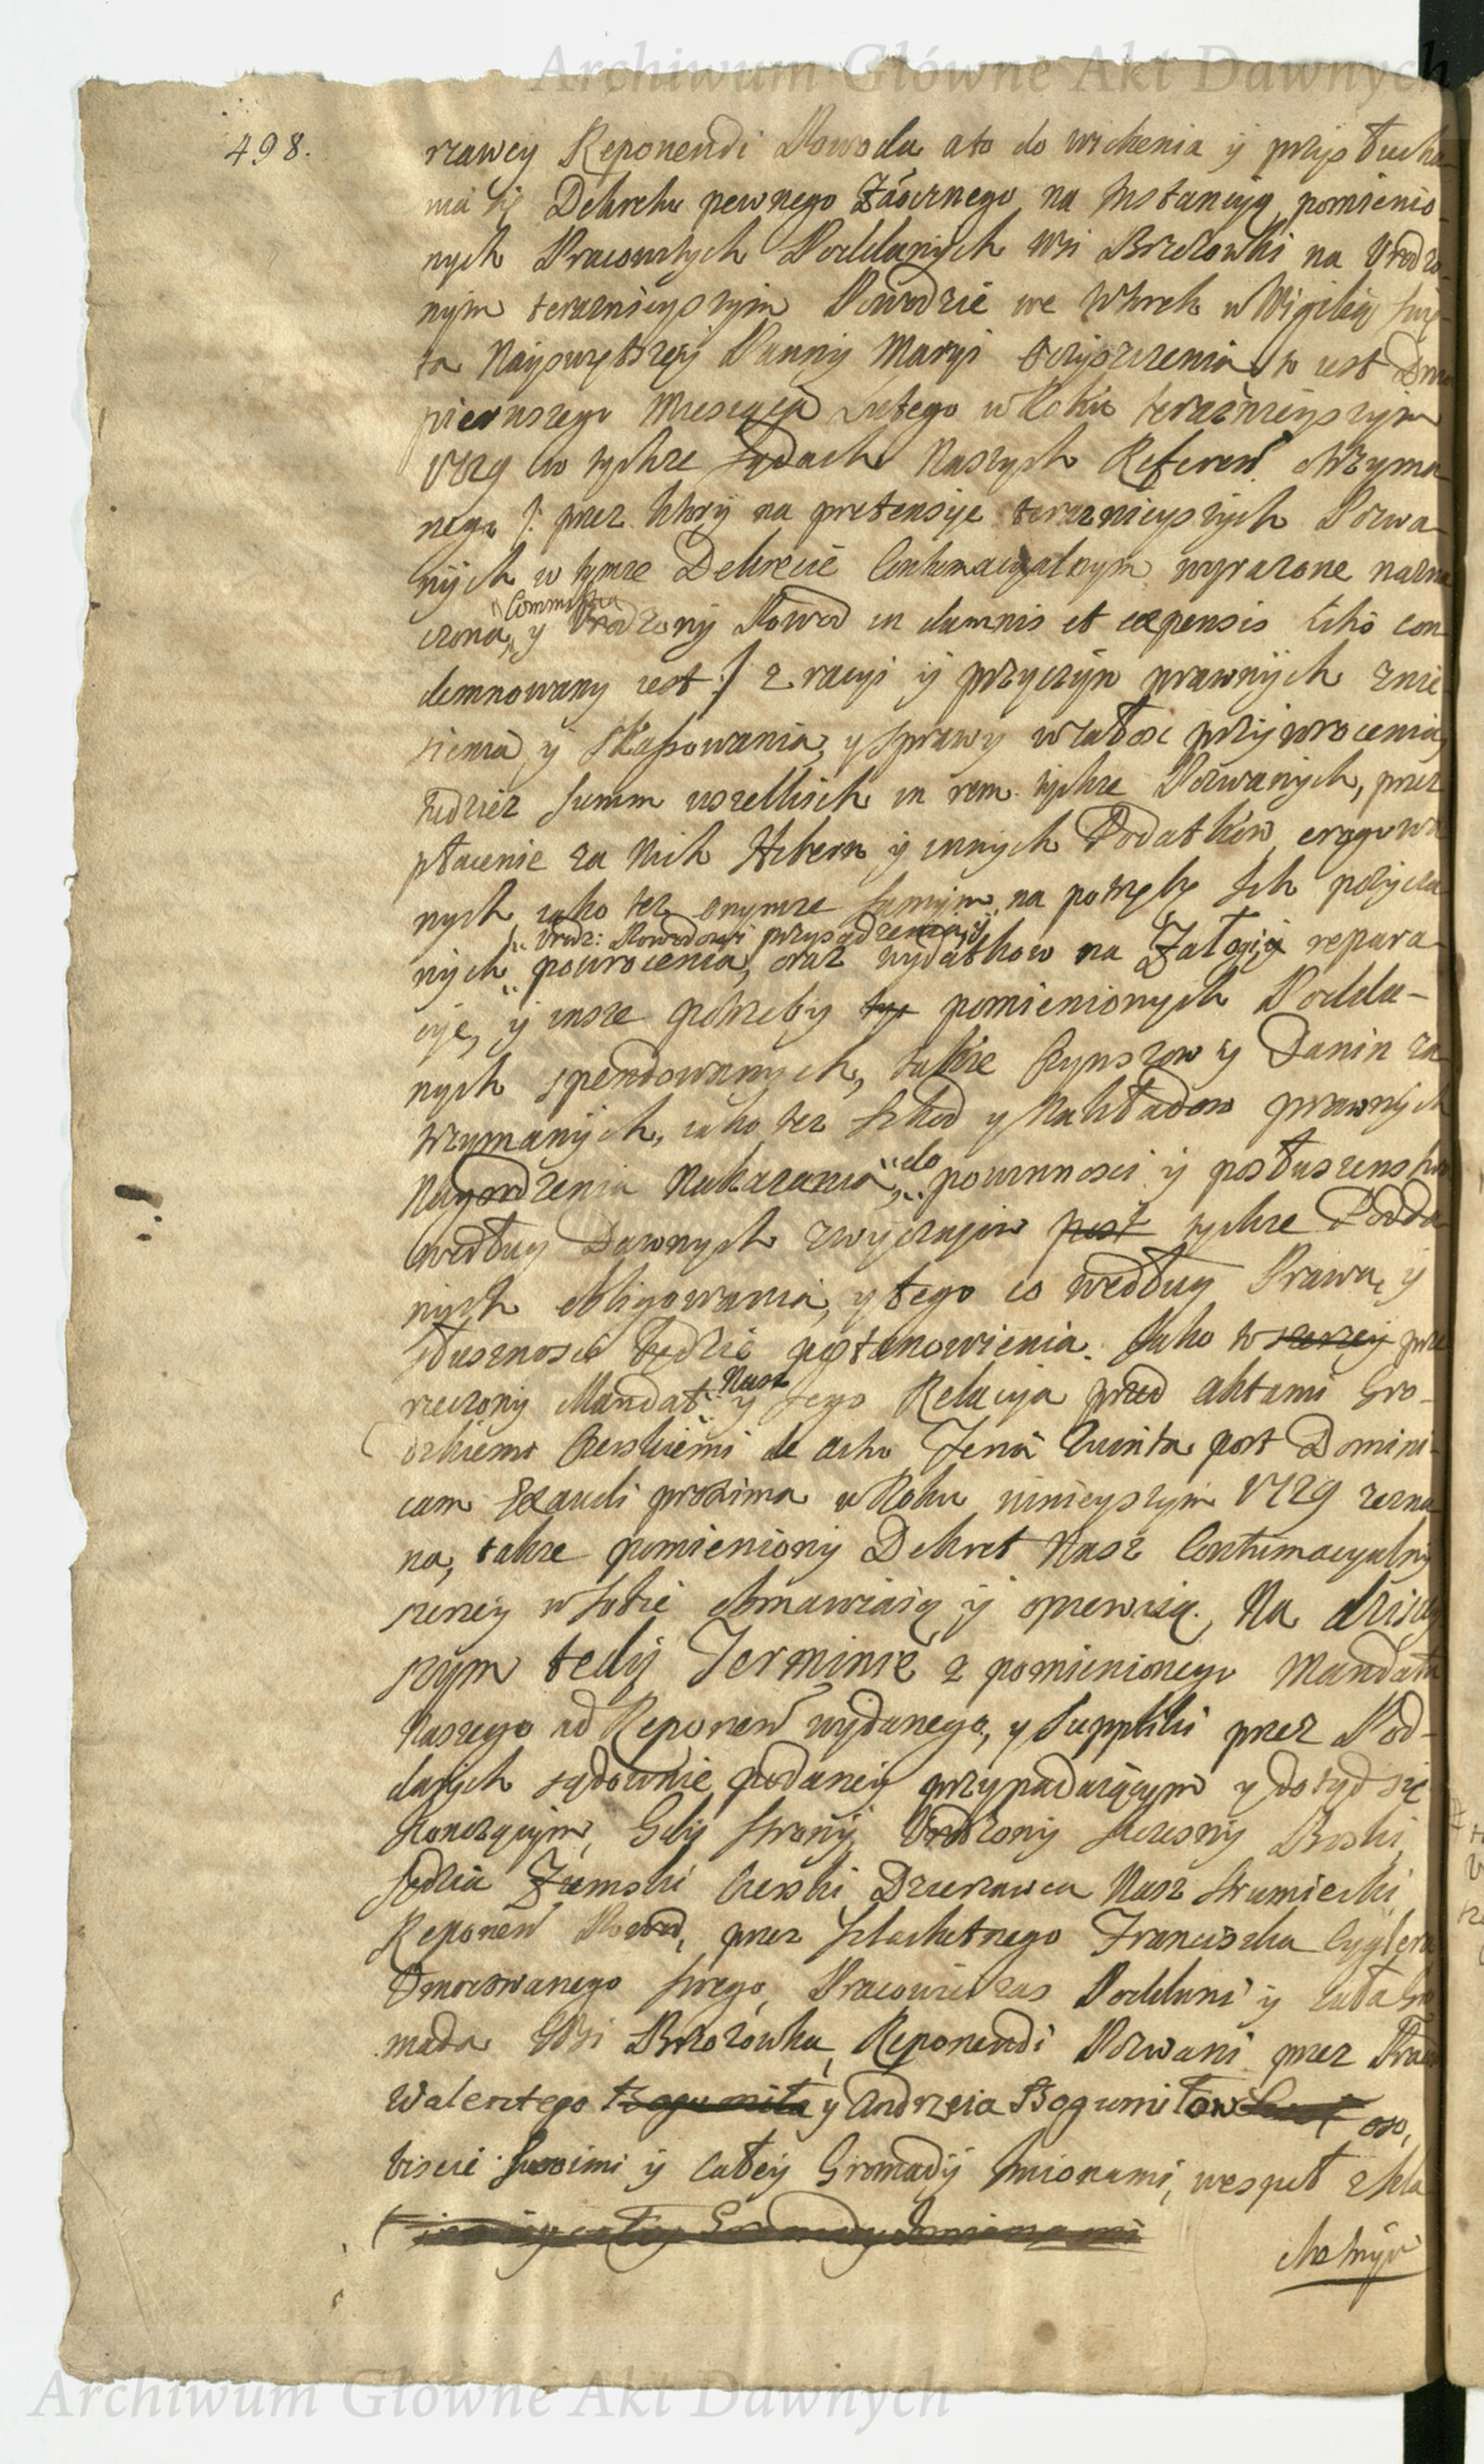 Archiwum Główne Akt Dawnych
498.
rzawcy Reponendi Powoda, ato do widzenia ÿ przysłucha-
nia się Dekretu pewnego Zaocznego, na Instancyą pomienio-
nych Pracowitych Poddanych Wsi Brzozowki na Vrodzo-
nÿm teraznieyszÿm Powodzie we Wtorek w Wigilią Swię-
ta Nayswiętszeÿ Pannÿ Maryi Oczÿszczenia, to iest Dnia
pierwszego Miesiąca Lutego w Roku teraznieÿszÿm
1729 w tychże Sądach Naszych Referen. otrzyma-
nego /: przez ktorÿ na pretensÿe teraznieyszÿch Pozwa-
nÿch w tymże Dekrecie Contumacyalnym wyrażone nazna-
czona "Commissia" y Vrodzonÿ Powod in damnis et expensis litis con-
demnowany iest :/ z racyi ÿ przyczÿn prawnÿch znie-
sienia ÿ skassowania, y sprawy w całosc przÿwrocenia,
tudziez Summ wszelkich in rem tychże Pozwanych, przez
płacenie za Nich Hibern ÿ innych Podatkow erogowa-
nych iako też onymże Samym na potrzeby Ich pożycza-
nych "Urodz: Powodowi przysądzenia, ÿ" powrocenia, oraz wydatkow na Załogi repara-
cÿe, ÿ insze potrzebÿ tyc pomienionych Podda-
nych spendowanych, także Czynszow ÿ Danin za-
trzymanÿch, iako też Szkod y Nakładow prawnych
Nagrodzenia Nakazania, "do" powinnosci ÿ posłuszenstwa
według Dawnych zwÿczaiow post tychże Podda-
nych obligowania, y tego co według Prawa ÿ
Słusznosci będzie postanowienia. Jako to szerzey prze-
rzeczony Mandat "Nasz" y Jego Relacyja przed Aktami Gro-
dzkiemi Czerskiemi de actu Feria Quinta post Domini-
cam Exaudi proxima w Roku ninieyszÿm 1729 zezna-
na, także pomienionÿ Dekret Nasz Contumacyalnÿ
szerzeÿ w Sobie obmawiaią ÿ opiewaią. Na dzisiey-
szÿm tedÿ Terminie z pomienionego Mandatu
Naszego ad Reponen. wydanego, y Suppliki przez Pod-
danych sądownie podaney przypadaiącym y dotąd się
konczącym, Gdÿ Stronÿ Vrodzonÿ Szczęsny Boski
Sędzia Ziemski Czerski Dzierżawca Nasz Strumiecki
Reponen. Powod, przez Szlachetnego Franciszka Cyglera
Umocowanego swego, Pracowici zas Poddani ÿ cała Gro-
mada Wsi Brzozowka, Reponendi Pozwani przez Prac:
Walentego Bogumiła y Andrzeia Bogumiłow oso-
biscie Swoimi ÿ całeÿ Gromadÿ Imionami, wespoł z Szla-
imi y całey Gromady Imionami
chetnÿm
Archiwum Główne Akt Dawnych